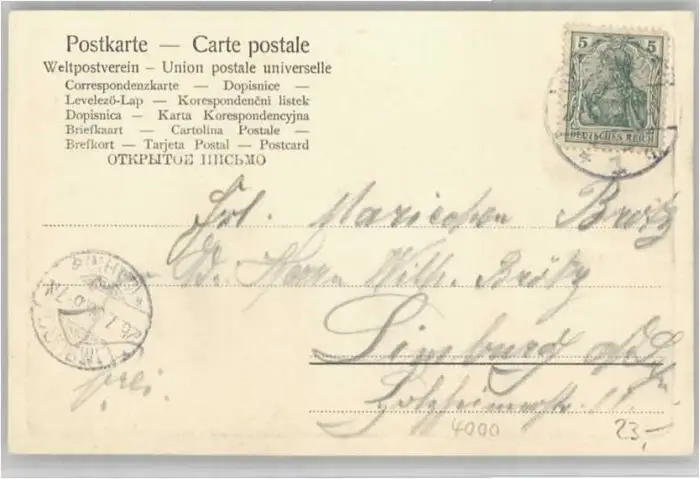 Postkarte — Carte postale
Weltpostverein – Union postale universelle
Correspondenzkarte — Dopisnice —
Levelező-Lap — Korespondenční listek
Dopisnica — Karta Korespondencyjna
Briefkaart — Cartolina Postale —
Brefkort — Tarjeta Postal — Postcard
ОТКРЫТОЕ ПИСЬМО
5 5
DEUTSCHES REICH
Frl. Mariechen Brötz
Herrn Wilh. Brötz
Limburg a/L
frei.
4000
23,-